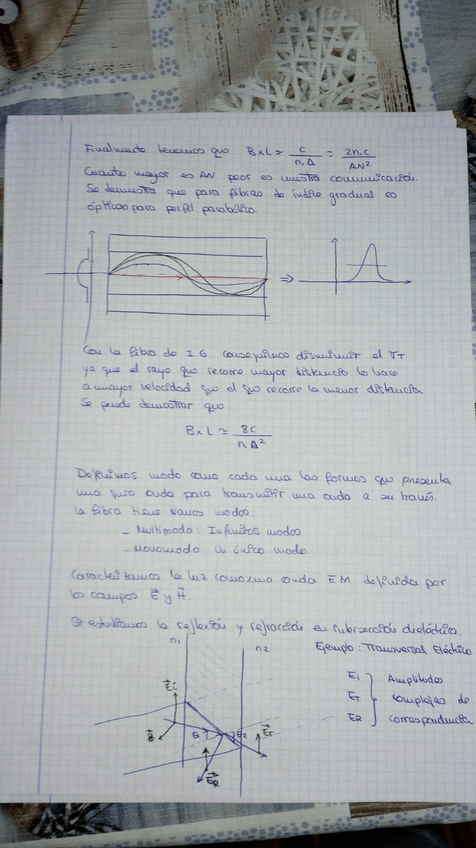 Finalmente tenemos que B×L ≃ c / n₁Δ = 2n₁c / AN²
Cuanto mayor es AN peor es nuestra comunicación.
Se demuestra que para fibras de índice gradual es
óptico para perfil parabólico.
⇒
Con la fibra de I.G. conseguimos disminuir el
ya que el rayo que recorre mayor distancia lo hace
a mayor velocidad que el que recorre la menor distancia.
Se puede demostrar que:
B×L ≃ 8c / n₁Δ²
Definimos modo como cada una las formas que presenta
una guía onda para transmitir una onda a su través.
la fibra tiene varios modos:
- Multimodo: Infinitos modos
- Monomodo: Un único modo.
Caracterizamos la luz como una onda EM definida por
los campos E⃗ y H⃗.
Si estudiamos la reflexión y refracción en intersección dieléctrica.
n₁ n₂ Ejemplo: Transversal Eléctrico
E⃗i
Ei } Amplitudes
ET } complejas de
ER } correspondencia
E⃗T
E⃗R